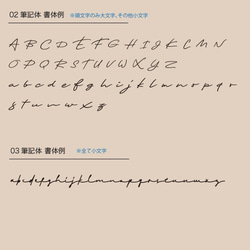 02 筆記体 書体例 ※頭文字のみ大文字、その他小文字
A B C D E F G H I J K L M N
O P Q R S T U V W X Y Z
a b c d e f g h i j k l m n o p q r
s t u v w x y z
03 筆記体 書体例 ※全て小文字
abcdefghijklmnopqrstuvwxyz